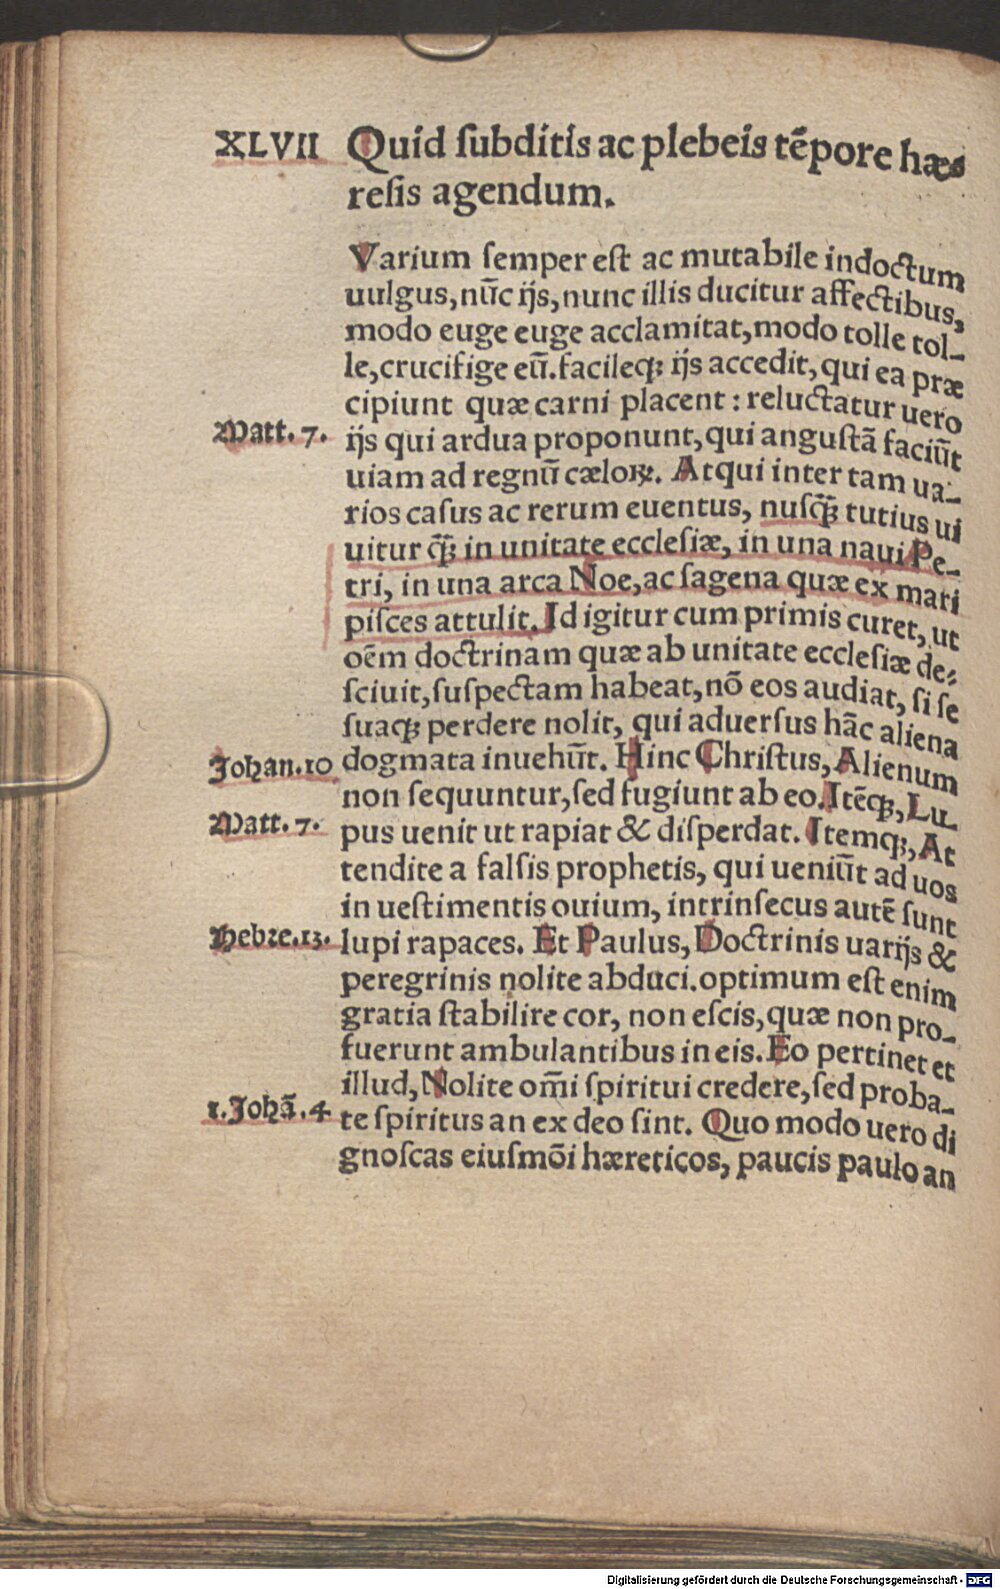 XLVII Quid ſubditis ac plebeis tēpore hæ⸗
reſis agendum.
Varium ſemper eſt ac mutabile indoctum
uulgus, nūc ijs, nunc illis ducitur affectibus,
modo euge euge acclamitat, modo tolle tol-
le, crucifige eū. facileqꝫ ijs accedit, qui ea præ
cipiunt quæ carni placent : reluctatur uero
Matt. 7. ijs qui ardua proponunt, qui anguſtā faciūt
uiam ad regnū cæloꝝ. Atqui inter tam ua-
rios caſus ac rerum euentus, nuſꝙ̄ tutius ui
uitur ꝙ̄ in unitate eccleſiæ, in una naui Pe-
tri, in una arca Noe, ac ſagena quæ ex mari
piſces attulit. Id igitur cum primis curet, ut
oēm doctrinam quæ ab unitate eccleſiæ de⸗
ſciuit, ſuſpectam habeat, nō eos audiat, ſi ſe
ſuaqꝫ perdere nolit, qui aduerſus hāc aliena
Johan. 10 dogmata inuehūt. Hinc Chriſtus, Alienum
non ſequuntur, ſed fugiunt ab eo. Itēqꝫ, Lu-
Matt. 7. pus uenit ut rapiat & diſperdat. Itemqꝫ, At
tendite a falſis prophetis, qui ueniūt ad uos
in ueſtimentis ouium, intrinſecus autē ſunt
Hebre. 13. lupi rapaces. Et Paulus, Doctrinis uarijs &
peregrinis nolite abduci. optimum eſt enim
gratia ſtabilire cor, non eſcis, quæ non pro-
fuerunt ambulantibus in eis. Eo pertinet et
illud, Nolite om̄i ſpiritui credere, ſed proba-
1. Johā. 4 te ſpiritus an ex deo ſint. Quo modo uero di
gnoſcas eiuſmōi hæreticos, paucis paulo an
Digitalisierung gefördert durch die Deutsche Forschungsgemeinschaft - DFG